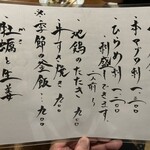 ・本マグロ刺 一二〇〇
・ひらめ刺 一二〇〇
刺盛りできます。
二人前〜
・地鶏のたたき 九〇〇
・牛すき焼き 九八〇
※季節の釜飯 九〇〇
牡蠣と生姜